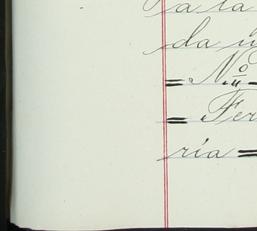 a la
da
= Nº
= Fer
ria =